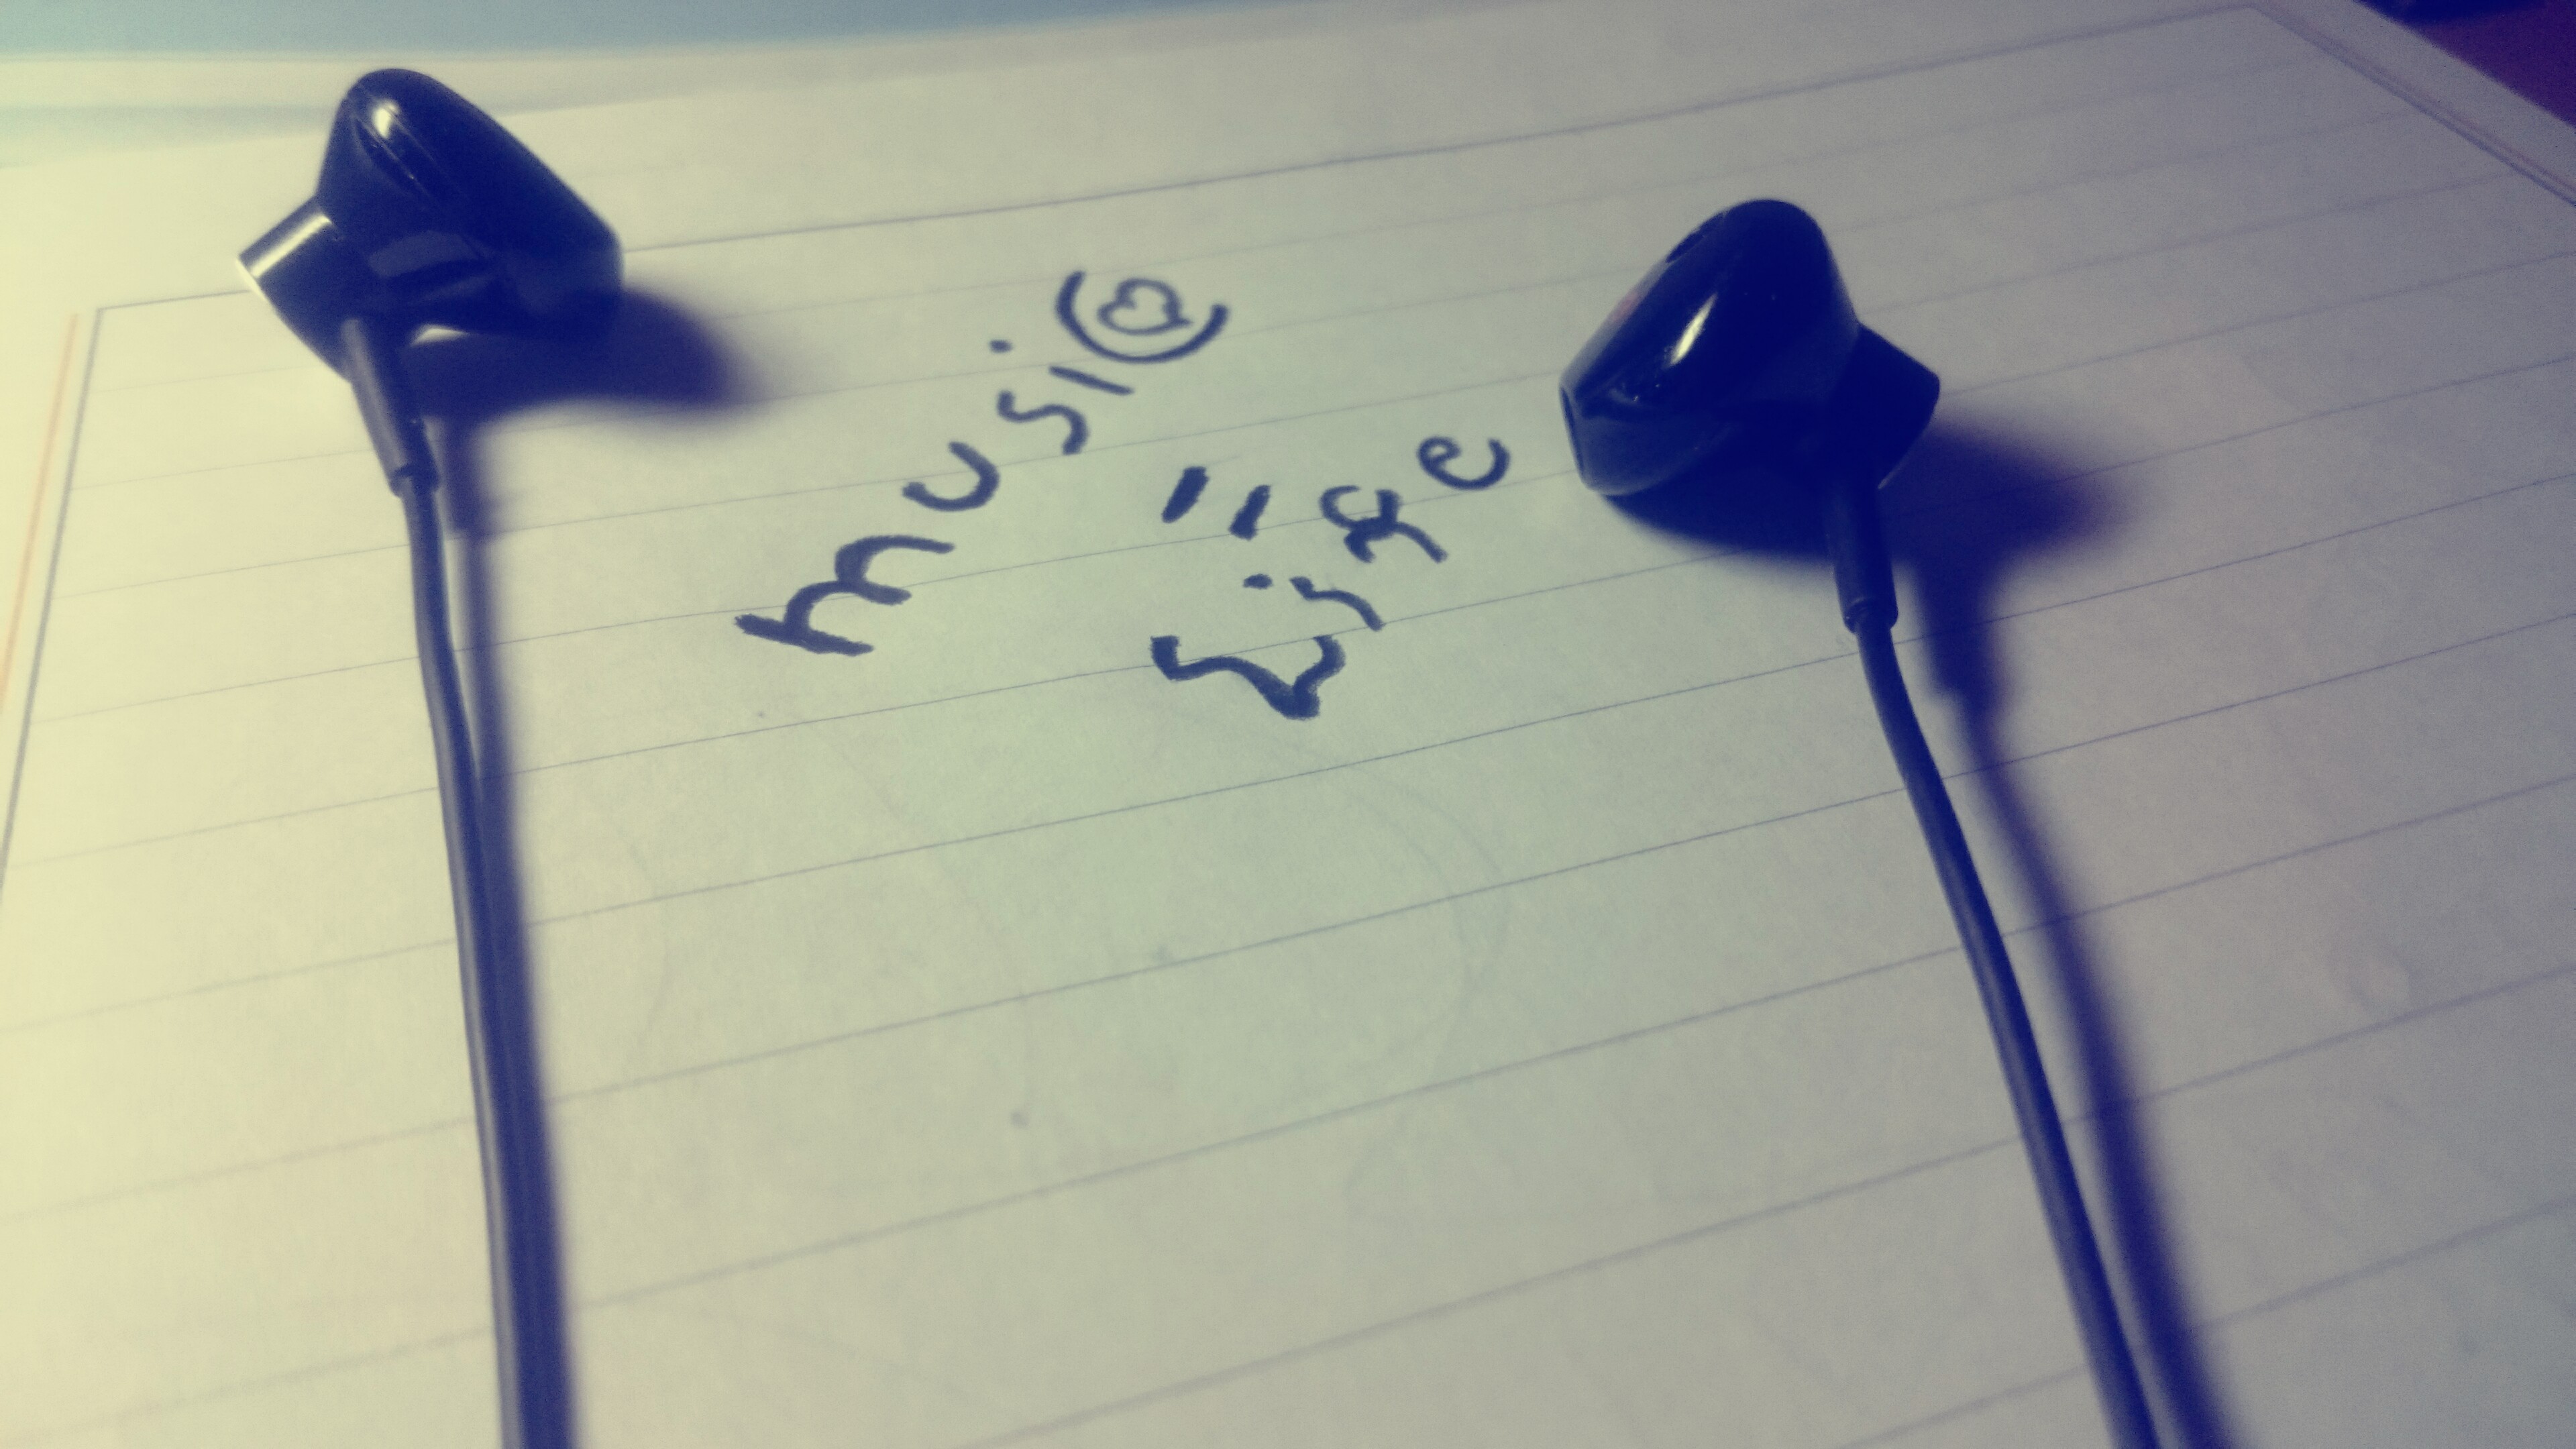 music
=
Life